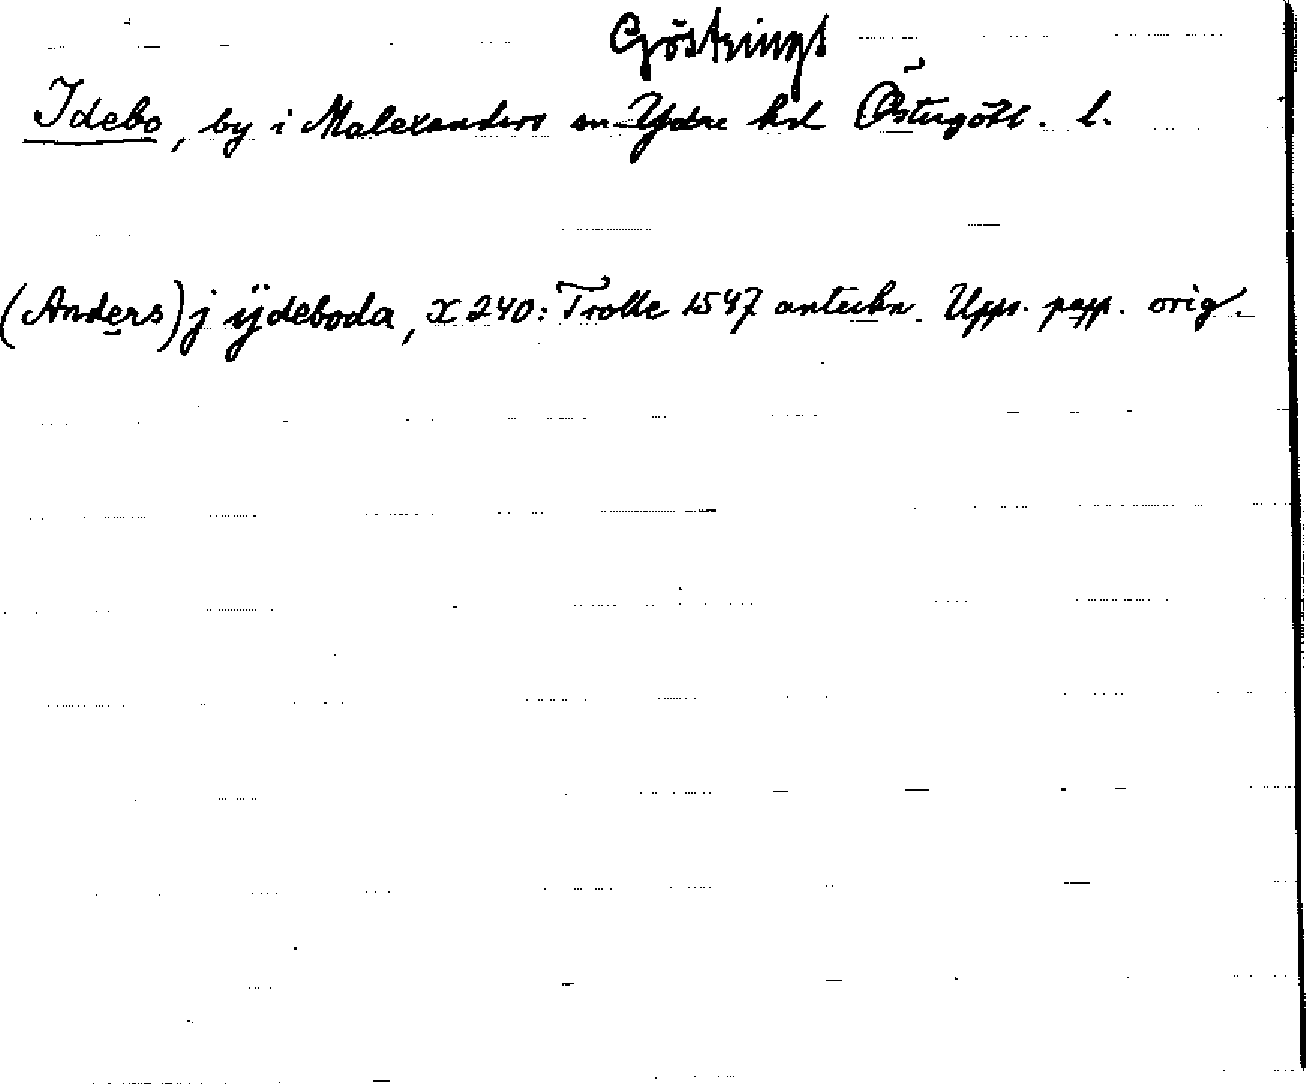 Göstrings
Idebo, by i Malexanders sn Ydre hd Östergötl. l.
(Anders) j ÿdeboda, X 240: Trolle 1547 anteckn. Upps. papp. orig.